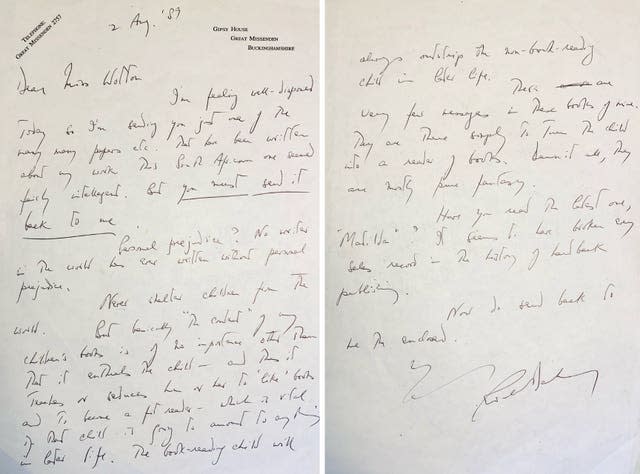 TELEPHONE
GREAT MISSENDEN 2757
2 Aug. '89
GIPSY HOUSE
GREAT MISSENDEN
BUCKINGHAMSHIRE
Dear Miss Wotton
I'm feeling well-disposed
today so I'm sending you just one of the
many many papers etc. that has been written
about my work. This South African one seemed
fairly intelligent. But you must send it
back to me
Personal prejudice? No writer
in the world has ever written without personal
prejudice.
Never shelter children from the
world.
But basically "the content" of my
children's books is of no importance other than
that it enthralls the child – and thus it
teaches or seduces him or her to 'like' books
and to become a fit reader – which is vital
if that child is going to amount to anything
in later life. The book-reading child will
always outstrip the non-book-reading
child in later life.
There are
very few messages in these books of mine.
They are there simply to turn the child
into a reader of books. Damn it all, they
are mostly pure fantasy.
Have you read the latest one,
"Matilda"? It seems to have broken any
sales record in the history of hardback
publishing.
Now do send back to
me the enclosed.
Roald Dahl